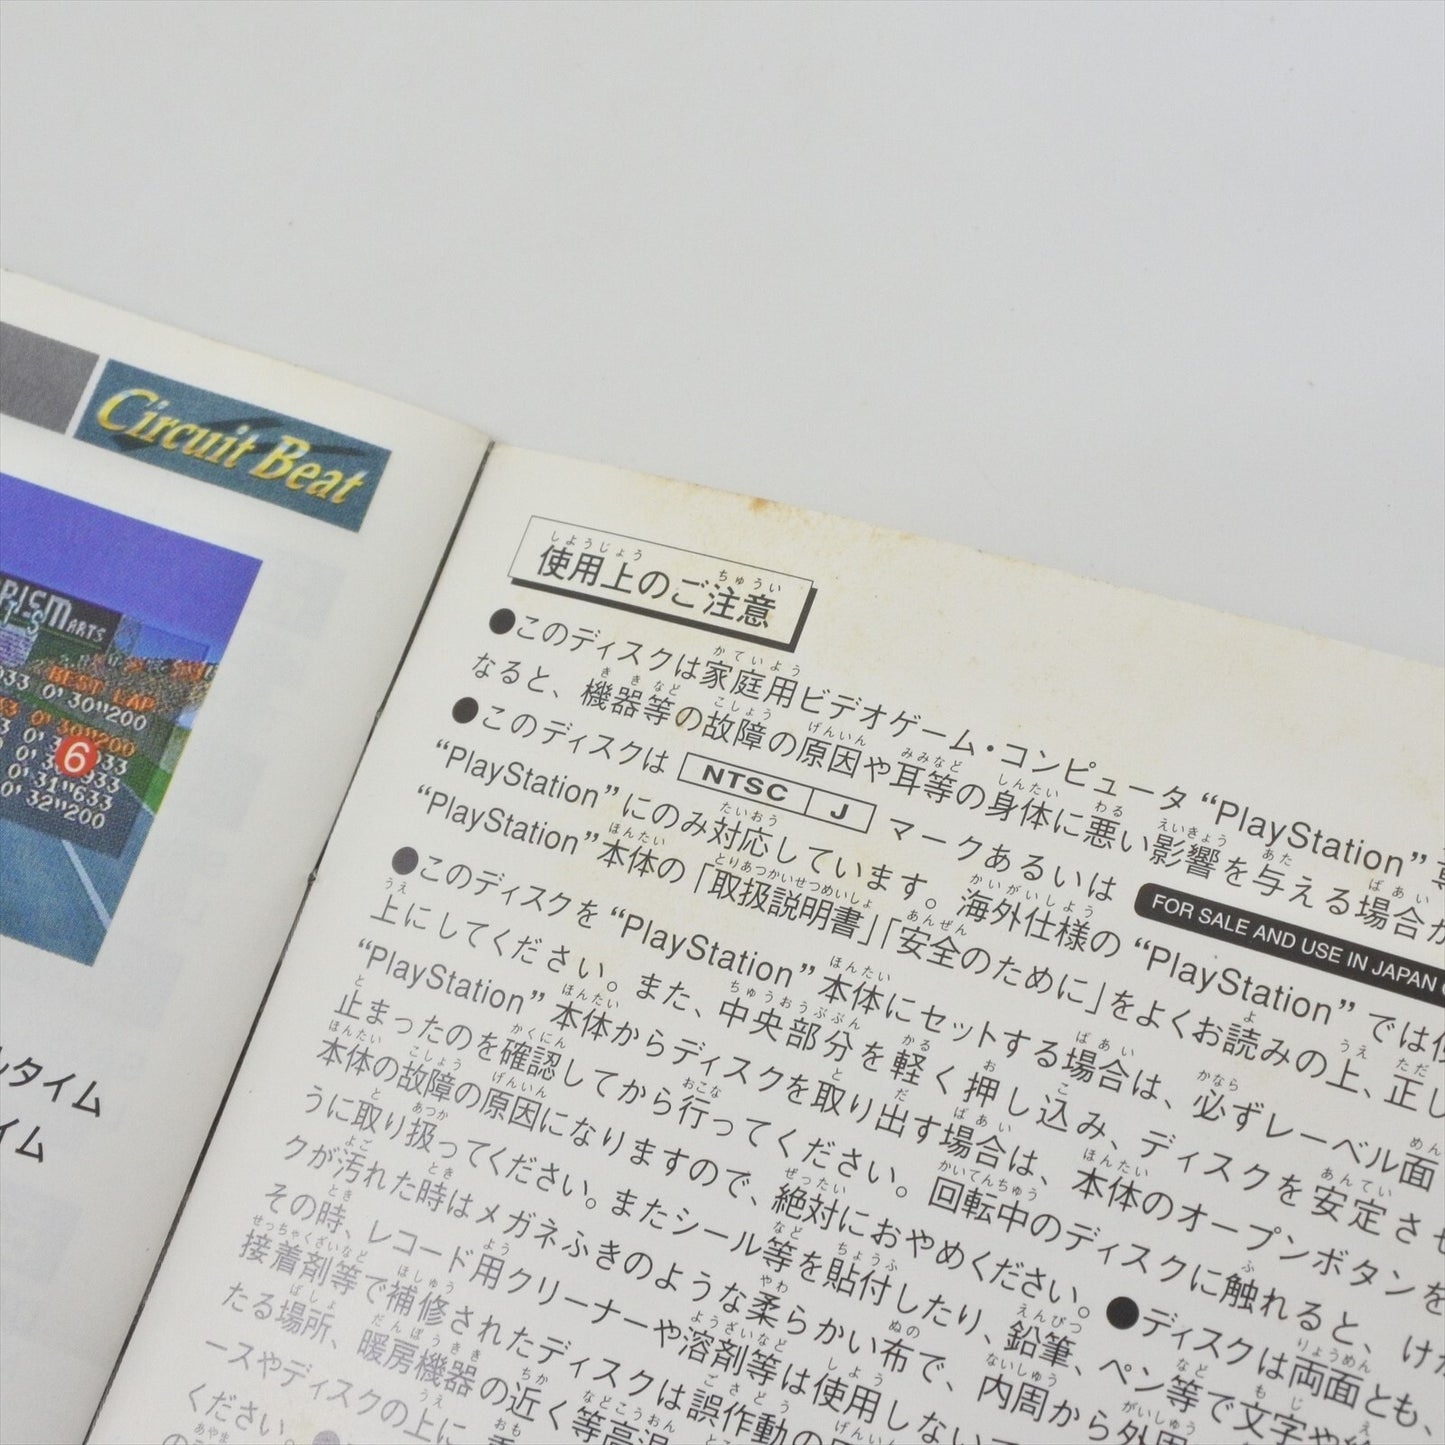 Circuit Beat
PRISM ARTS
BEST LAP
933 0'30"200
0'30"200
6
0'31"633
0'32"200
ルタイム
イム
使用上のご注意
●このディスクは家庭用ビデオゲーム・コンピュータ“PlayStation”専
なると、機器等の故障の原因や耳等の身体に悪い影響を与える場合が
●このディスクは NTSC J マークあるいは FOR SALE AND USE IN JAPAN
“PlayStation”にのみ対応しています。海外仕様の“PlayStation”では使
“PlayStation”本体の「取扱説明書」「安全のために」をよくお読みの上、正し
●このディスクを“PlayStation”本体にセットする場合は、必ずレーベル面
上にしてください。また、中央部分を軽く押し込み、ディスクを安定させ
“PlayStation”本体からディスクを取り出す場合は、本体のオープンボタンを
止まったのを確認してから行ってください。回転中のディスクに触れると、けが
本体の故障の原因になりますので、絶対におやめください。●ディスクは両面とも、
うに取り扱ってください。またシール等を貼付したり、鉛筆、ペン等で文字や
クが汚れた時はメガネふきのような柔らかい布で、内周から外周
その時、レコード用クリーナーや溶剤等は使用しない
接着剤等で補修されたディスクは誤作動の
たる場所、暖房機器の近く等高温
ースやディスクの上に
ください。